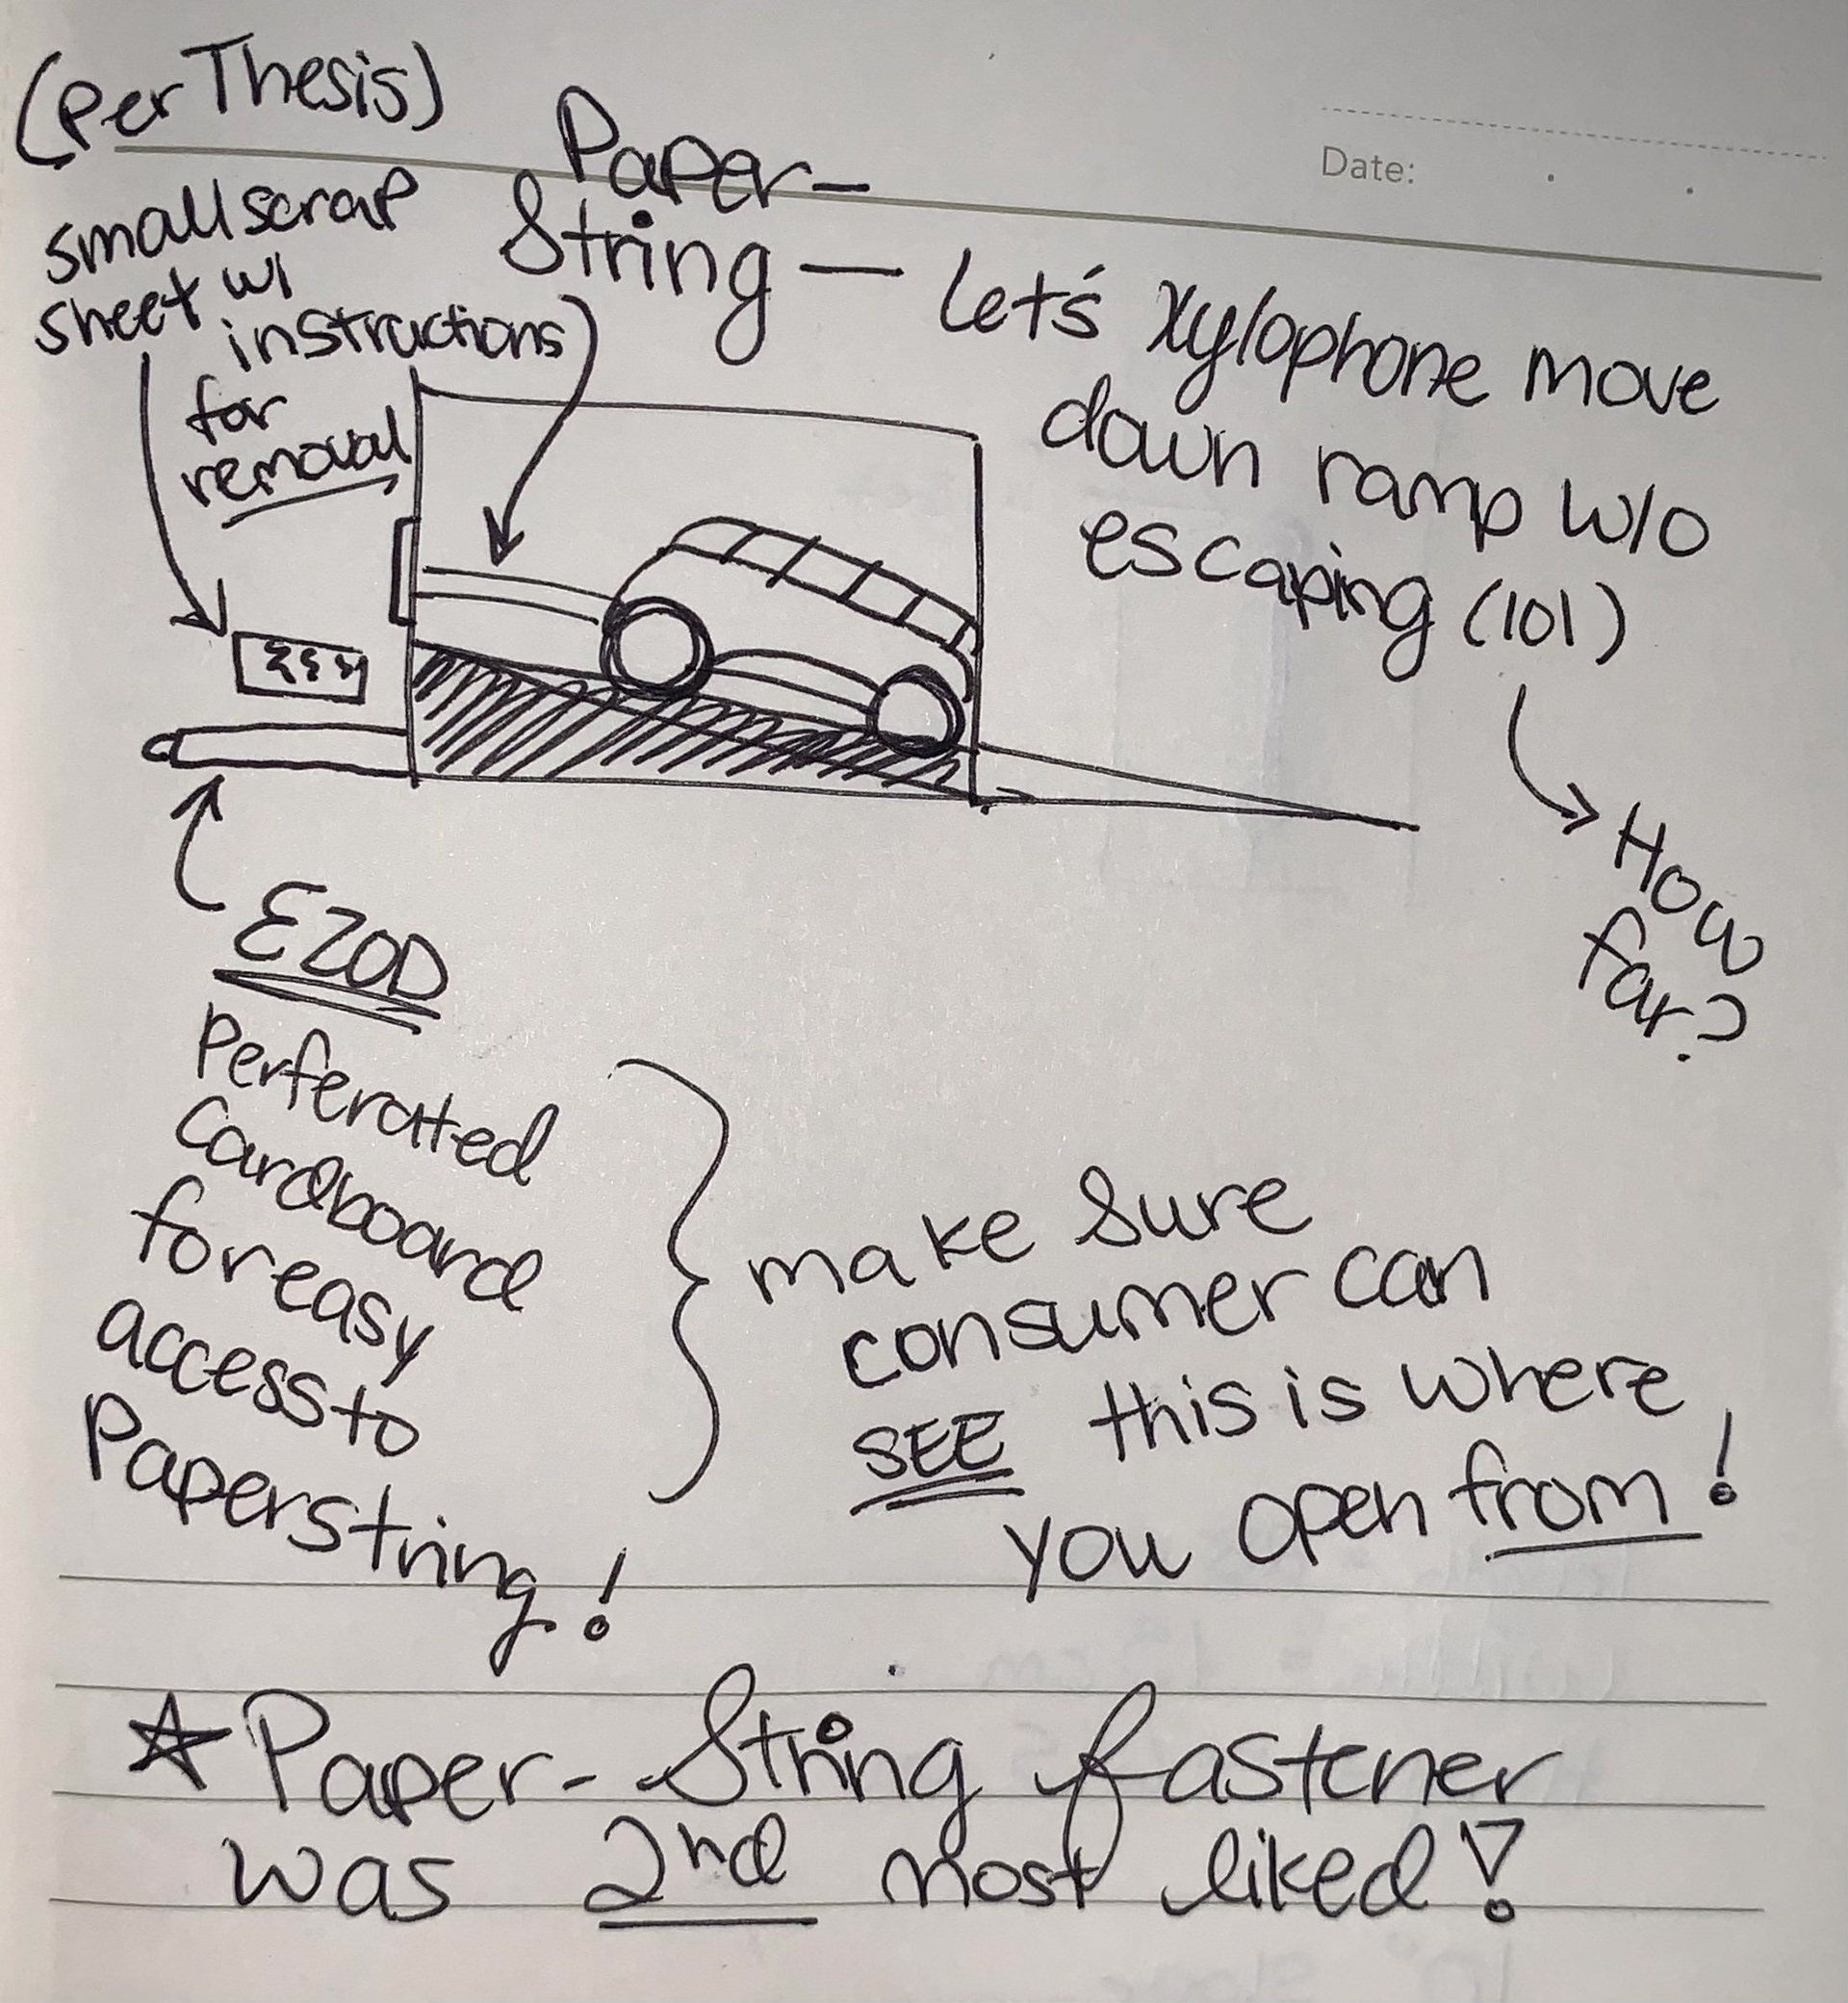 (Per Thesis)
Date: . .
Paper-
String — Let's xylophone move
down ramp w/o
escaping (101)
How
far?
small scrap
sheet w/
instructions
for
removal
EZOD
Perferated
Cardboard
for easy
access to
Paperstring!
make sure
consumer can
SEE this is where
you open from!
☆ Paper-String fastener
was 2nd most liked!